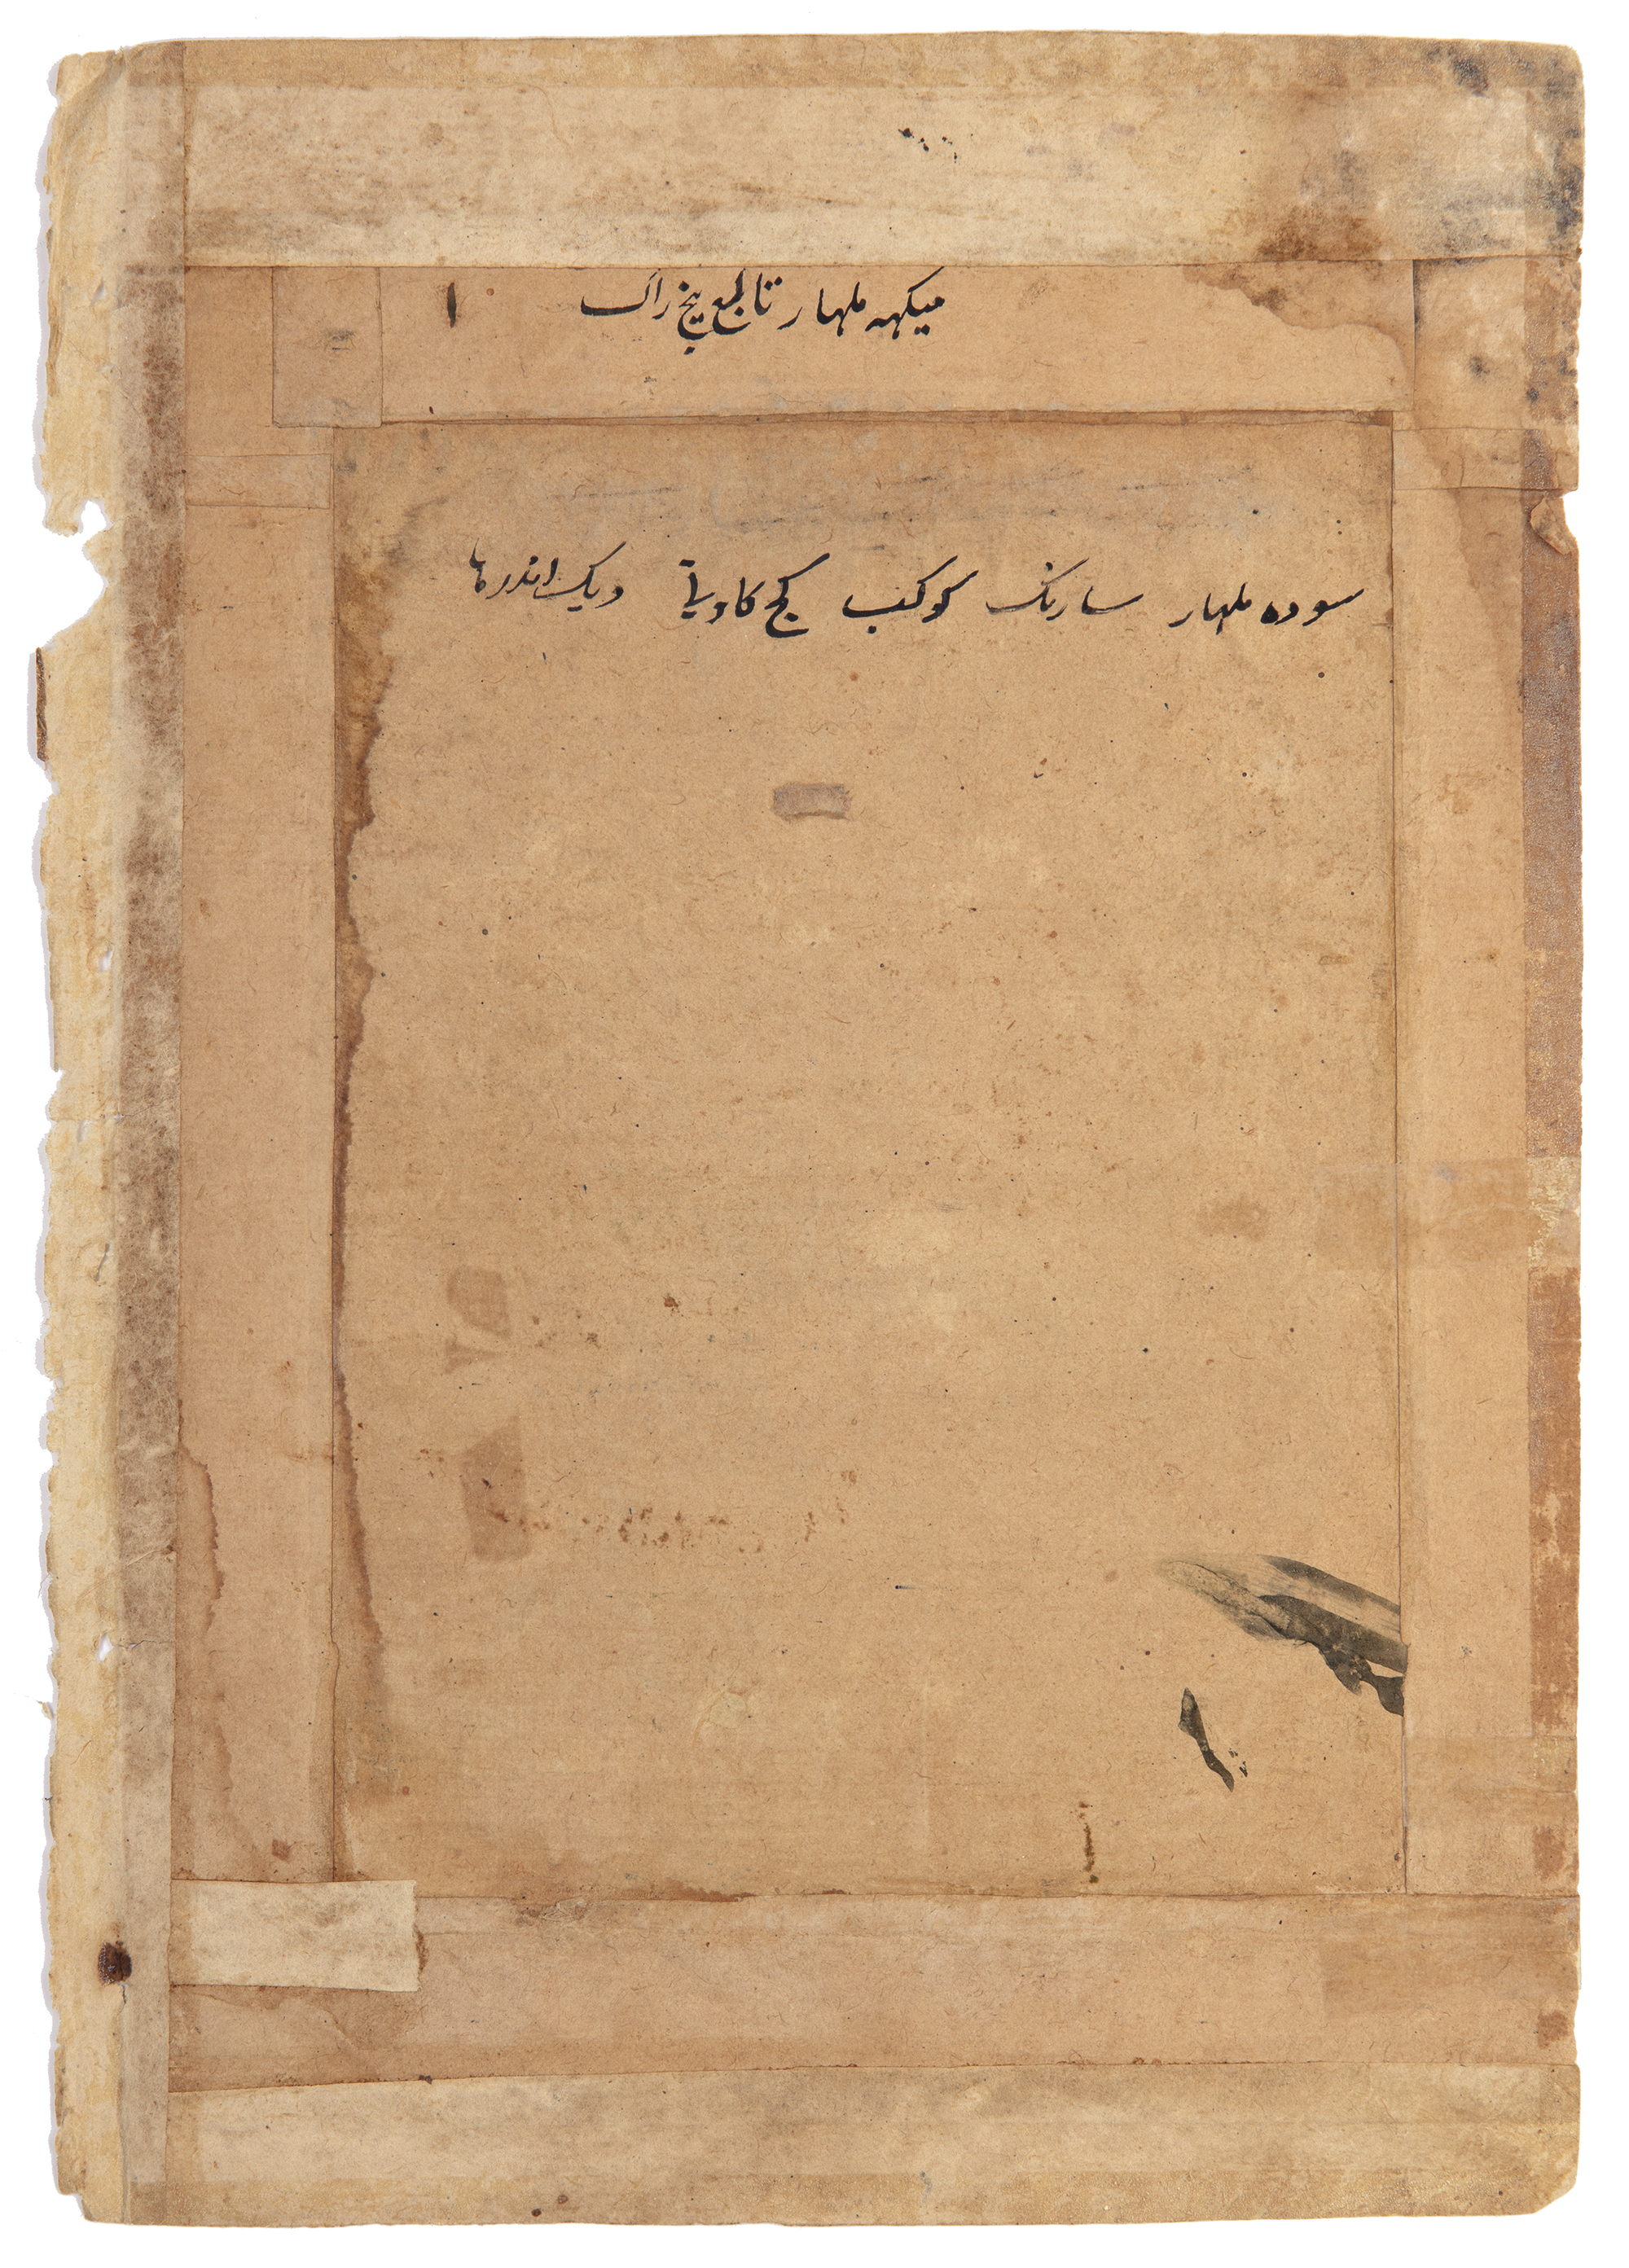 میکهه ملهار تابع پنج راک ١
سوده ملهار سارنک کوکب کج کاویانی و یک اندرها